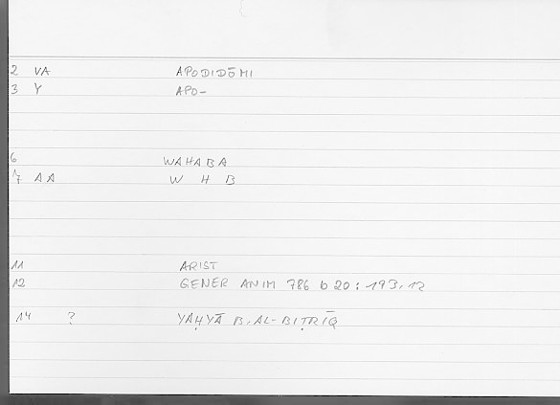 2 VA APODIDŌMI
3 Y APO-
6 WAHABA
7 AA W H B
11 ARIST
12 GENER ANIM 786 b 20 : 193,12
14 ? YAḤYĀ B. AL-BIṬRĪQ